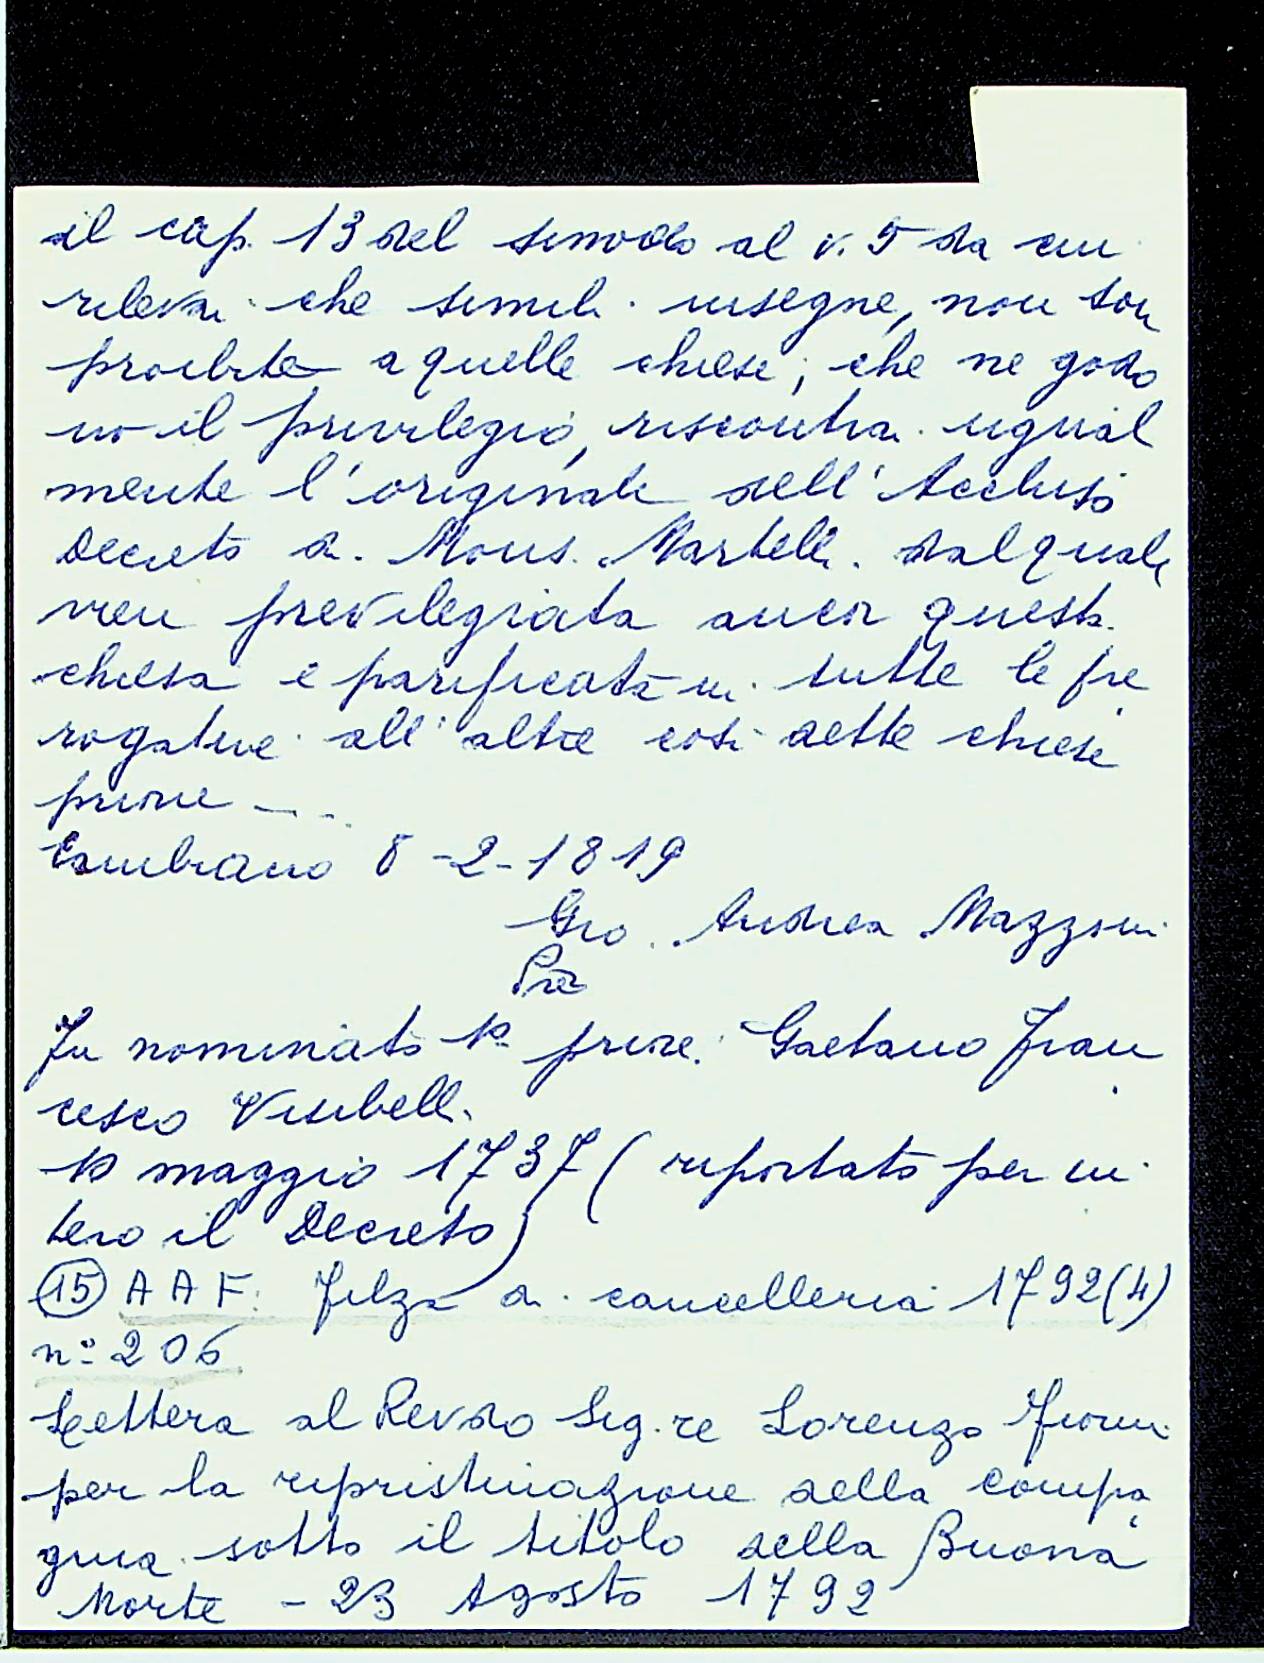 il cap. 13 del sinodo al v. 5 da cui
rilevai che simili insegne, non son
proibite a quelle chiese, che ne godo
no il privilegio, riscontrai ugual
mente l'originale dell'Accluso
Decreto di Mons. Martelli dal quale
vien previlegiata ancor questa
chiesa e parificata in tutte le pre
rogative all'altre così dette chiese
prime - - -
Cambiano 8-2-1819
Gio. Andrea Mazzoni
Pre
Fu nominato 1º priore Gaetano Fran
cesco Visibelli
1º maggio 1737 (riportato per in
tero il Decreto)
(15) A A F. Filza di cancelleria 1792(4)
nº 206
Lettera al Revdo Sig.re Lorenzo
per la ripristinazione della compa
gnia sotto il titolo della Buona
Morte - 23 Agosto 1792